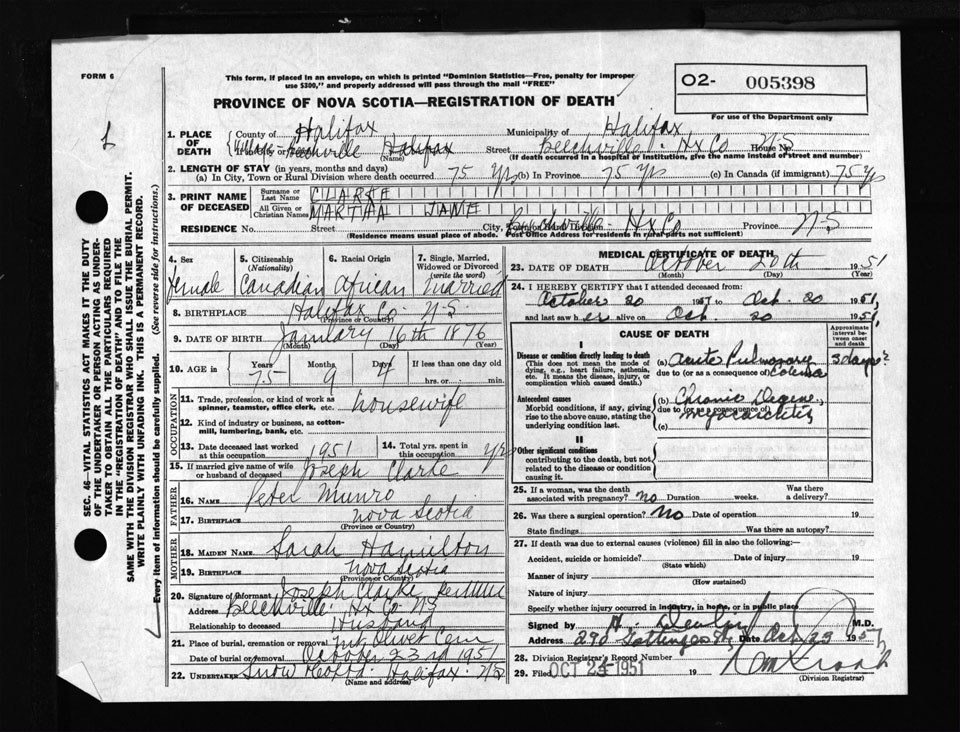 FORM 6
This form, if placed in an envelope, on which is printed "Dominion Statistics—Free, penalty for improper
use $300," and properly addressed will pass through the mail "FREE"
O2- 005398
For use of the Department only
PROVINCE OF NOVA SCOTIA—REGISTRATION OF DEATH
SEC. 46—VITAL STATISTICS ACT MAKES IT THE DUTY
OF THE UNDERTAKER OR PERSON ACTING AS UNDER-
TAKER TO OBTAIN ALL THE PARTICULARS REQUIRED
IN THE "REGISTRATION OF DEATH" AND TO FILE THE
SAME WITH THE DIVISION REGISTRAR WHO SHALL ISSUE THE BURIAL PERMIT.
WRITE PLAINLY WITH UNFADING INK. THIS IS A PERMANENT RECORD.
Every item of information should be carefully supplied. (See reverse side for instructions.)
1. PLACE OF DEATH County of Halifax Municipality of Halifax
Village Beechville Halifax (Name) Street Beechville Hx Co House No. N.S
(If death occurred in a hospital or institution, give the name instead of street and number)
2. LENGTH OF STAY (in years, months and days)
(a) In City, Town or Rural Division where death occurred 75 Yrs (b) In Province 75 Yrs (c) In Canada (if immigrant) 75 Yrs
3. PRINT NAME OF DECEASED Surname or Last Name CLARKE
All Given or Christian Names MARTHA JANE
RESIDENCE No. Street City, Beechville Hx Co Province N.S
(Residence means usual place of abode. Post Office Address for residents in rural parts not sufficient)
4. Sex Female
5. Citizenship (Nationality) Canadian
6. Racial Origin African
7. Single, Married, Widowed or Divorced (write the word) Married
8. BIRTHPLACE Halifax Co N.S
(Province or Country)
9. DATE OF BIRTH January 16th 1876
(Month) (Day) (Year)
10. AGE in Years 75 Months 9 Days 4 If less than one day old
hrs. or min.
OCCUPATION
11. Trade, profession, or kind of work as spinner, teamster, office clerk, etc. Housewife
12. Kind of industry or business, as cotton-mill, lumbering, bank, etc.
13. Date deceased last worked at this occupation 1951
14. Total yrs. spent in this occupation yrs
15. If married give name of wife or husband of deceased Joseph Clarke
FATHER
16. NAME Peter Munro
17. BIRTHPLACE Nova Scotia
(Province or Country)
MOTHER
18. MAIDEN NAME Sarah Hamilton
19. BIRTHPLACE Nova Scotia
(Province or Country)
20. Signature of informant Joseph Clarke
Address Beechville Hx Co NS
Relationship to deceased Husband
21. Place of burial, cremation or removal Mt Olivet Cem
Date of burial or removal October 23rd 1951
22. UNDERTAKER Snow Halifax N.S
(Name and address)
MEDICAL CERTIFICATE OF DEATH
23. DATE OF DEATH October 20th 1951
(Month) (Day) (Year)
24. I HEREBY CERTIFY that I attended deceased from:
October 20 1951 to Oct. 20 1951
and last saw her alive on Oct. 20 1951
CAUSE OF DEATH
Approximate interval between onset and death
I
Disease or condition directly leading to death
(This does not mean the mode of dying, e.g., heart failure, asthenia, etc. It means the disease, injury, or complication which caused death.)
(a) Acute Pulmonary Edema 3 days
due to (or as a consequence of)
Antecedent causes
Morbid conditions, if any, giving rise to the above cause, stating the underlying condition last.
(b) Chronic Degene. myocarditis
due to (or as a consequence of)
(c)
II
Other significant conditions
contributing to the death, but not related to the disease or condition causing it.
25. If a woman, was the death associated with pregnancy? No Duration weeks. Was there a delivery?
26. Was there a surgical operation? No Date of operation 19
State findings Was there an autopsy?
27. If death was due to external causes (violence) fill in also the following:
Accident, suicide or homicide? Date of injury 19
(State which)
Manner of injury
(How sustained)
Nature of injury
Specify whether injury occurred in industry, in home, or in public place
Signed by H. Devlin M.D.
Address 290 Gottingen St, Date Oct 23 1951
28. Division Registrar's Record Number
29. Filed OCT 25 1951 19
(Division Registrar)